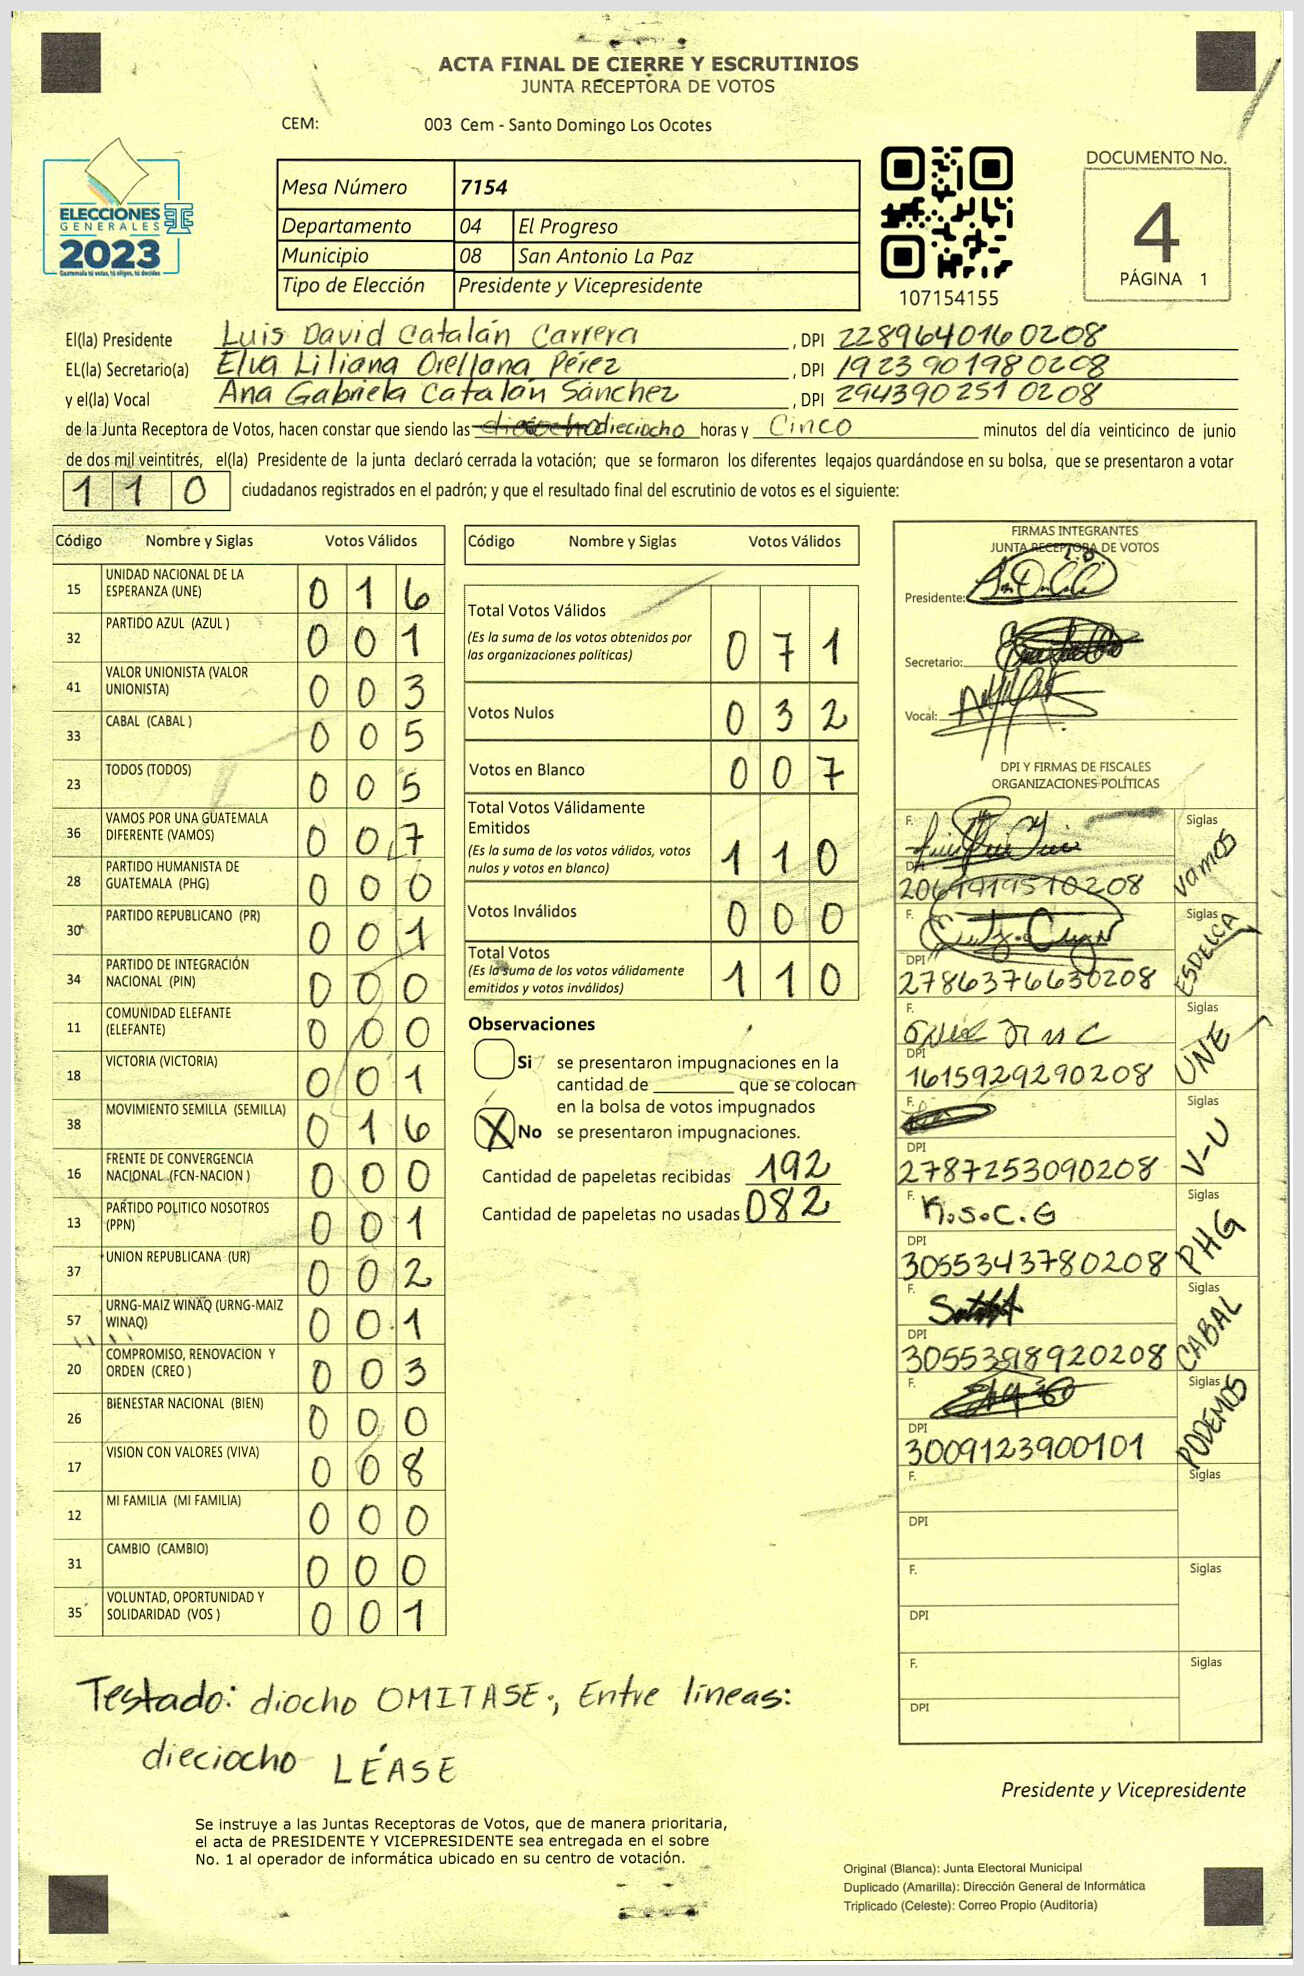 ACTA FINAL DE CIERRE Y ESCRUTINIOS
JUNTA RECEPTORA DE VOTOS
CEM: 003 Cem - Santo Domingo Los Ocotes
ELECCIONES
GENERALES
2023
Guatemala tú votas, tú eliges, tú decides
Mesa Número 7154
Departamento 04 El Progreso
Municipio 08 San Antonio La Paz
Tipo de Elección Presidente y Vicepresidente
107154155
DOCUMENTO No.
4
PÁGINA 1
El(la) Presidente Luis David Catalán Carrera, DPI 2289640160208
EL(la) Secretario(a) Elva Liliana Orellana Pérez, DPI 1923901980208
y el(la) Vocal Ana Gabriela Catalán Sánchez, DPI 2943902510208
de la Junta Receptora de Votos, hacen constar que siendo las dieciocho horas y Cinco minutos del día veinticinco de junio
de dos mil veintitrés, el(la) Presidente de la junta declaró cerrada la votación; que se formaron los diferentes legajos guardándose en su bolsa, que se presentaron a votar
110 ciudadanos registrados en el padrón; y que el resultado final del escrutinio de votos es el siguiente:
Código Nombre y Siglas Votos Válidos
15 UNIDAD NACIONAL DE LA ESPERANZA (UNE) 016
32 PARTIDO AZUL (AZUL ) 001
41 VALOR UNIONISTA (VALOR UNIONISTA) 003
33 CABAL (CABAL ) 005
23 TODOS (TODOS) 005
36 VAMOS POR UNA GUATEMALA DIFERENTE (VAMOS) 007
28 PARTIDO HUMANISTA DE GUATEMALA (PHG) 000
30 PARTIDO REPUBLICANO (PR) 001
34 PARTIDO DE INTEGRACIÓN NACIONAL (PIN) 000
11 COMUNIDAD ELEFANTE (ELEFANTE) 000
18 VICTORIA (VICTORIA) 001
38 MOVIMIENTO SEMILLA (SEMILLA) 016
16 FRENTE DE CONVERGENCIA NACIONAL (FCN-NACION ) 000
13 PARTIDO POLITICO NOSOTROS (PPN) 001
37 UNION REPUBLICANA (UR) 002
57 URNG-MAIZ WINAQ (URNG-MAIZ WINAQ) 001
20 COMPROMISO, RENOVACION Y ORDEN (CREO ) 003
26 BIENESTAR NACIONAL (BIEN) 000
17 VISION CON VALORES (VIVA) 008
12 MI FAMILIA (MI FAMILIA) 000
31 CAMBIO (CAMBIO) 000
35 VOLUNTAD, OPORTUNIDAD Y SOLIDARIDAD (VOS ) 001
Código Nombre y Siglas Votos Válidos
Total Votos Válidos 071
(Es la suma de los votos obtenidos por
las organizaciones políticas)
Votos Nulos 032
Votos en Blanco 007
Total Votos Válidamente
Emitidos 110
(Es la suma de los votos válidos, votos
nulos y votos en blanco)
Votos Inválidos 000
Total Votos 110
(Es la suma de los votos válidamente
emitidos y votos inválidos)
Observaciones
Si se presentaron impugnaciones en la
cantidad de ________ que se colocan
en la bolsa de votos impugnados
X No se presentaron impugnaciones.
Cantidad de papeletas recibidas 192
Cantidad de papeletas no usadas 082
FIRMAS INTEGRANTES
JUNTA RECEPTORA DE VOTOS
Presidente:
Secretario:
Vocal:
DPI Y FIRMAS DE FISCALES
ORGANIZACIONES POLÍTICAS
F. Siglas Vamos
DPI
F. Siglas
DPI 2786376630208
F. Siglas UNE
DPI 1615929290208
F. Siglas V-U
DPI 2787253090208
F. K.S.C.G Siglas PHG
DPI 3055343780208
F. Siglas CABAL
DPI 3055398920208
F. Siglas PODEMOS
DPI 3009123900101
F. Siglas
DPI
F. Siglas
DPI
F. Siglas
DPI
Testado: diocho OMITASE., Entre líneas:
dieciocho LÉASE
Presidente y Vicepresidente
Se instruye a las Juntas Receptoras de Votos, que de manera prioritaria,
el acta de PRESIDENTE Y VICEPRESIDENTE sea entregada en el sobre
No. 1 al operador de informática ubicado en su centro de votación.
Original (Blanca): Junta Electoral Municipal
Duplicado (Amarilla): Dirección General de Informática
Triplicado (Celeste): Correo Propio (Auditoria)